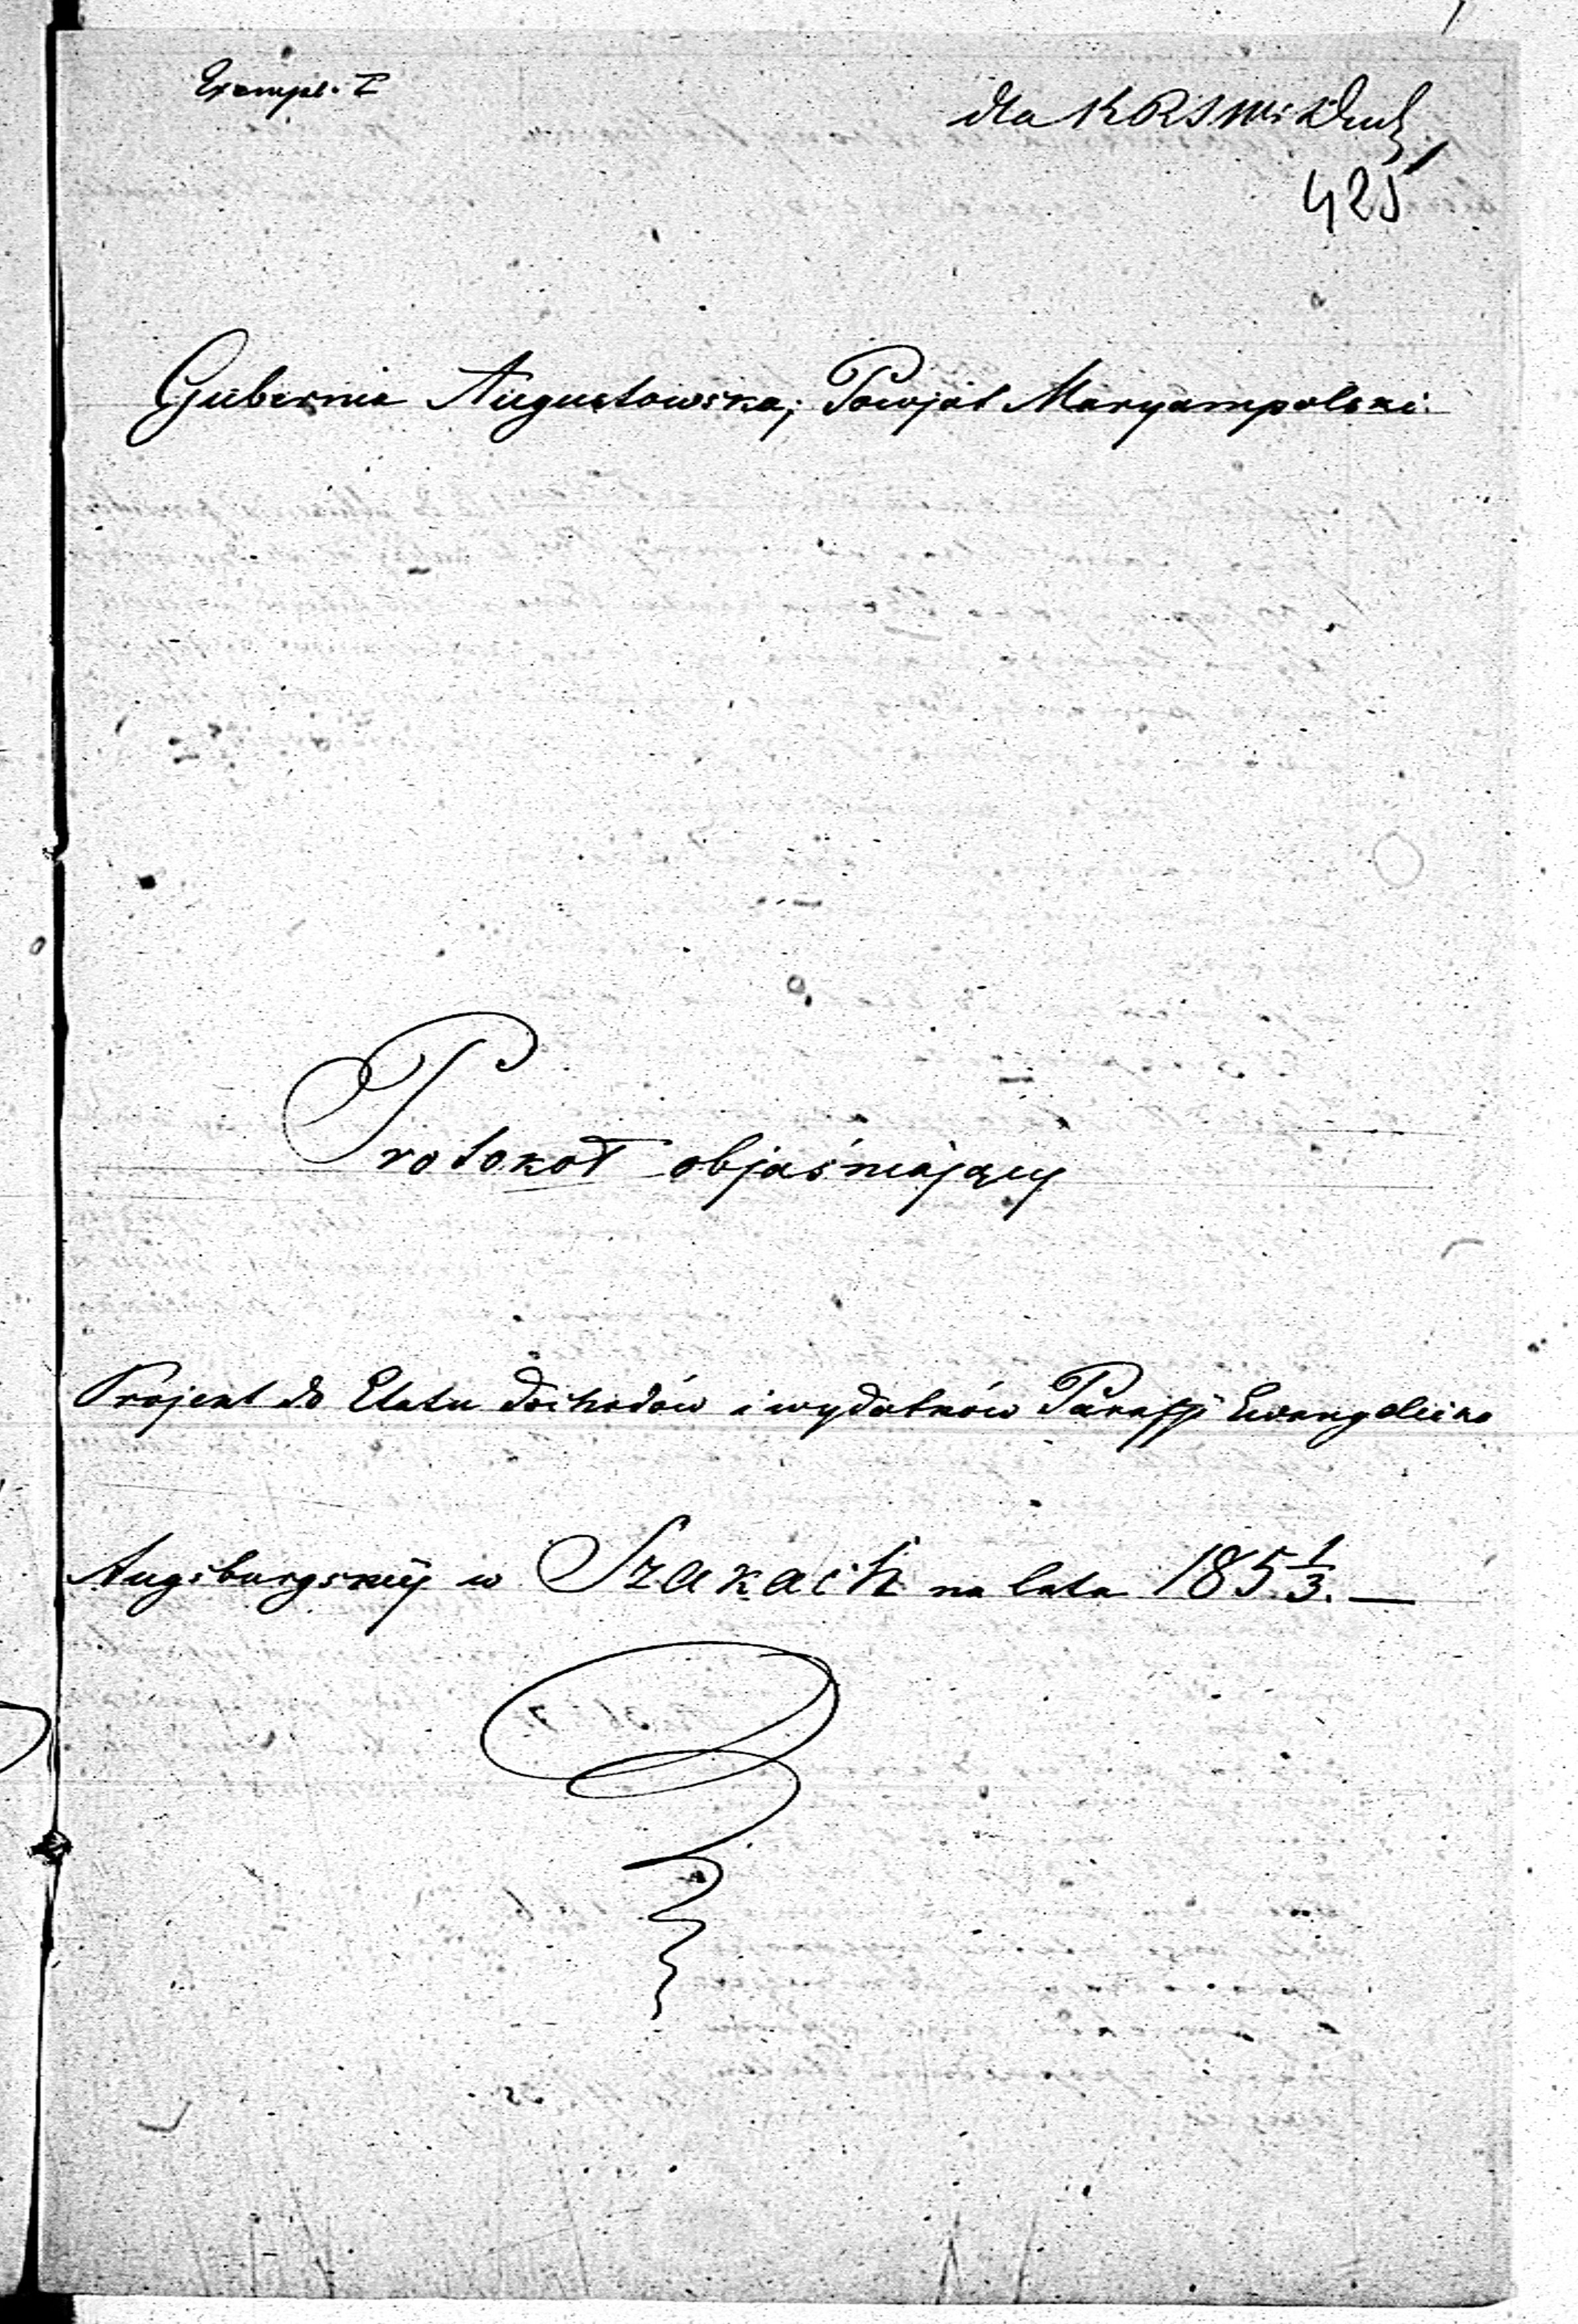 Exempl. I
dla KRSW i Duch
425
Gubernia Augustowska; Powjat Maryampolski.
Protokoł objaśniający
Projekt do Etatu dochodów i wydatków Paraffji Ewangelicko
Augsburgskiéj w Szakach na lata 185 1/3. —